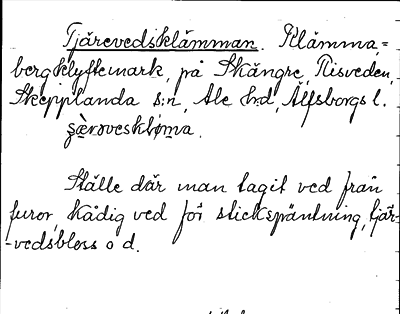 Tjärevedsklämman. Klämma,=
bergklyftemark, på Skångre, Risveden,
Skepplanda s:n, Ale h:d, Älfsborgs l.
Ställe där man tagit ved från
furor, kådig ved för stickspäntning, tjär-
-vedsbloss o d.